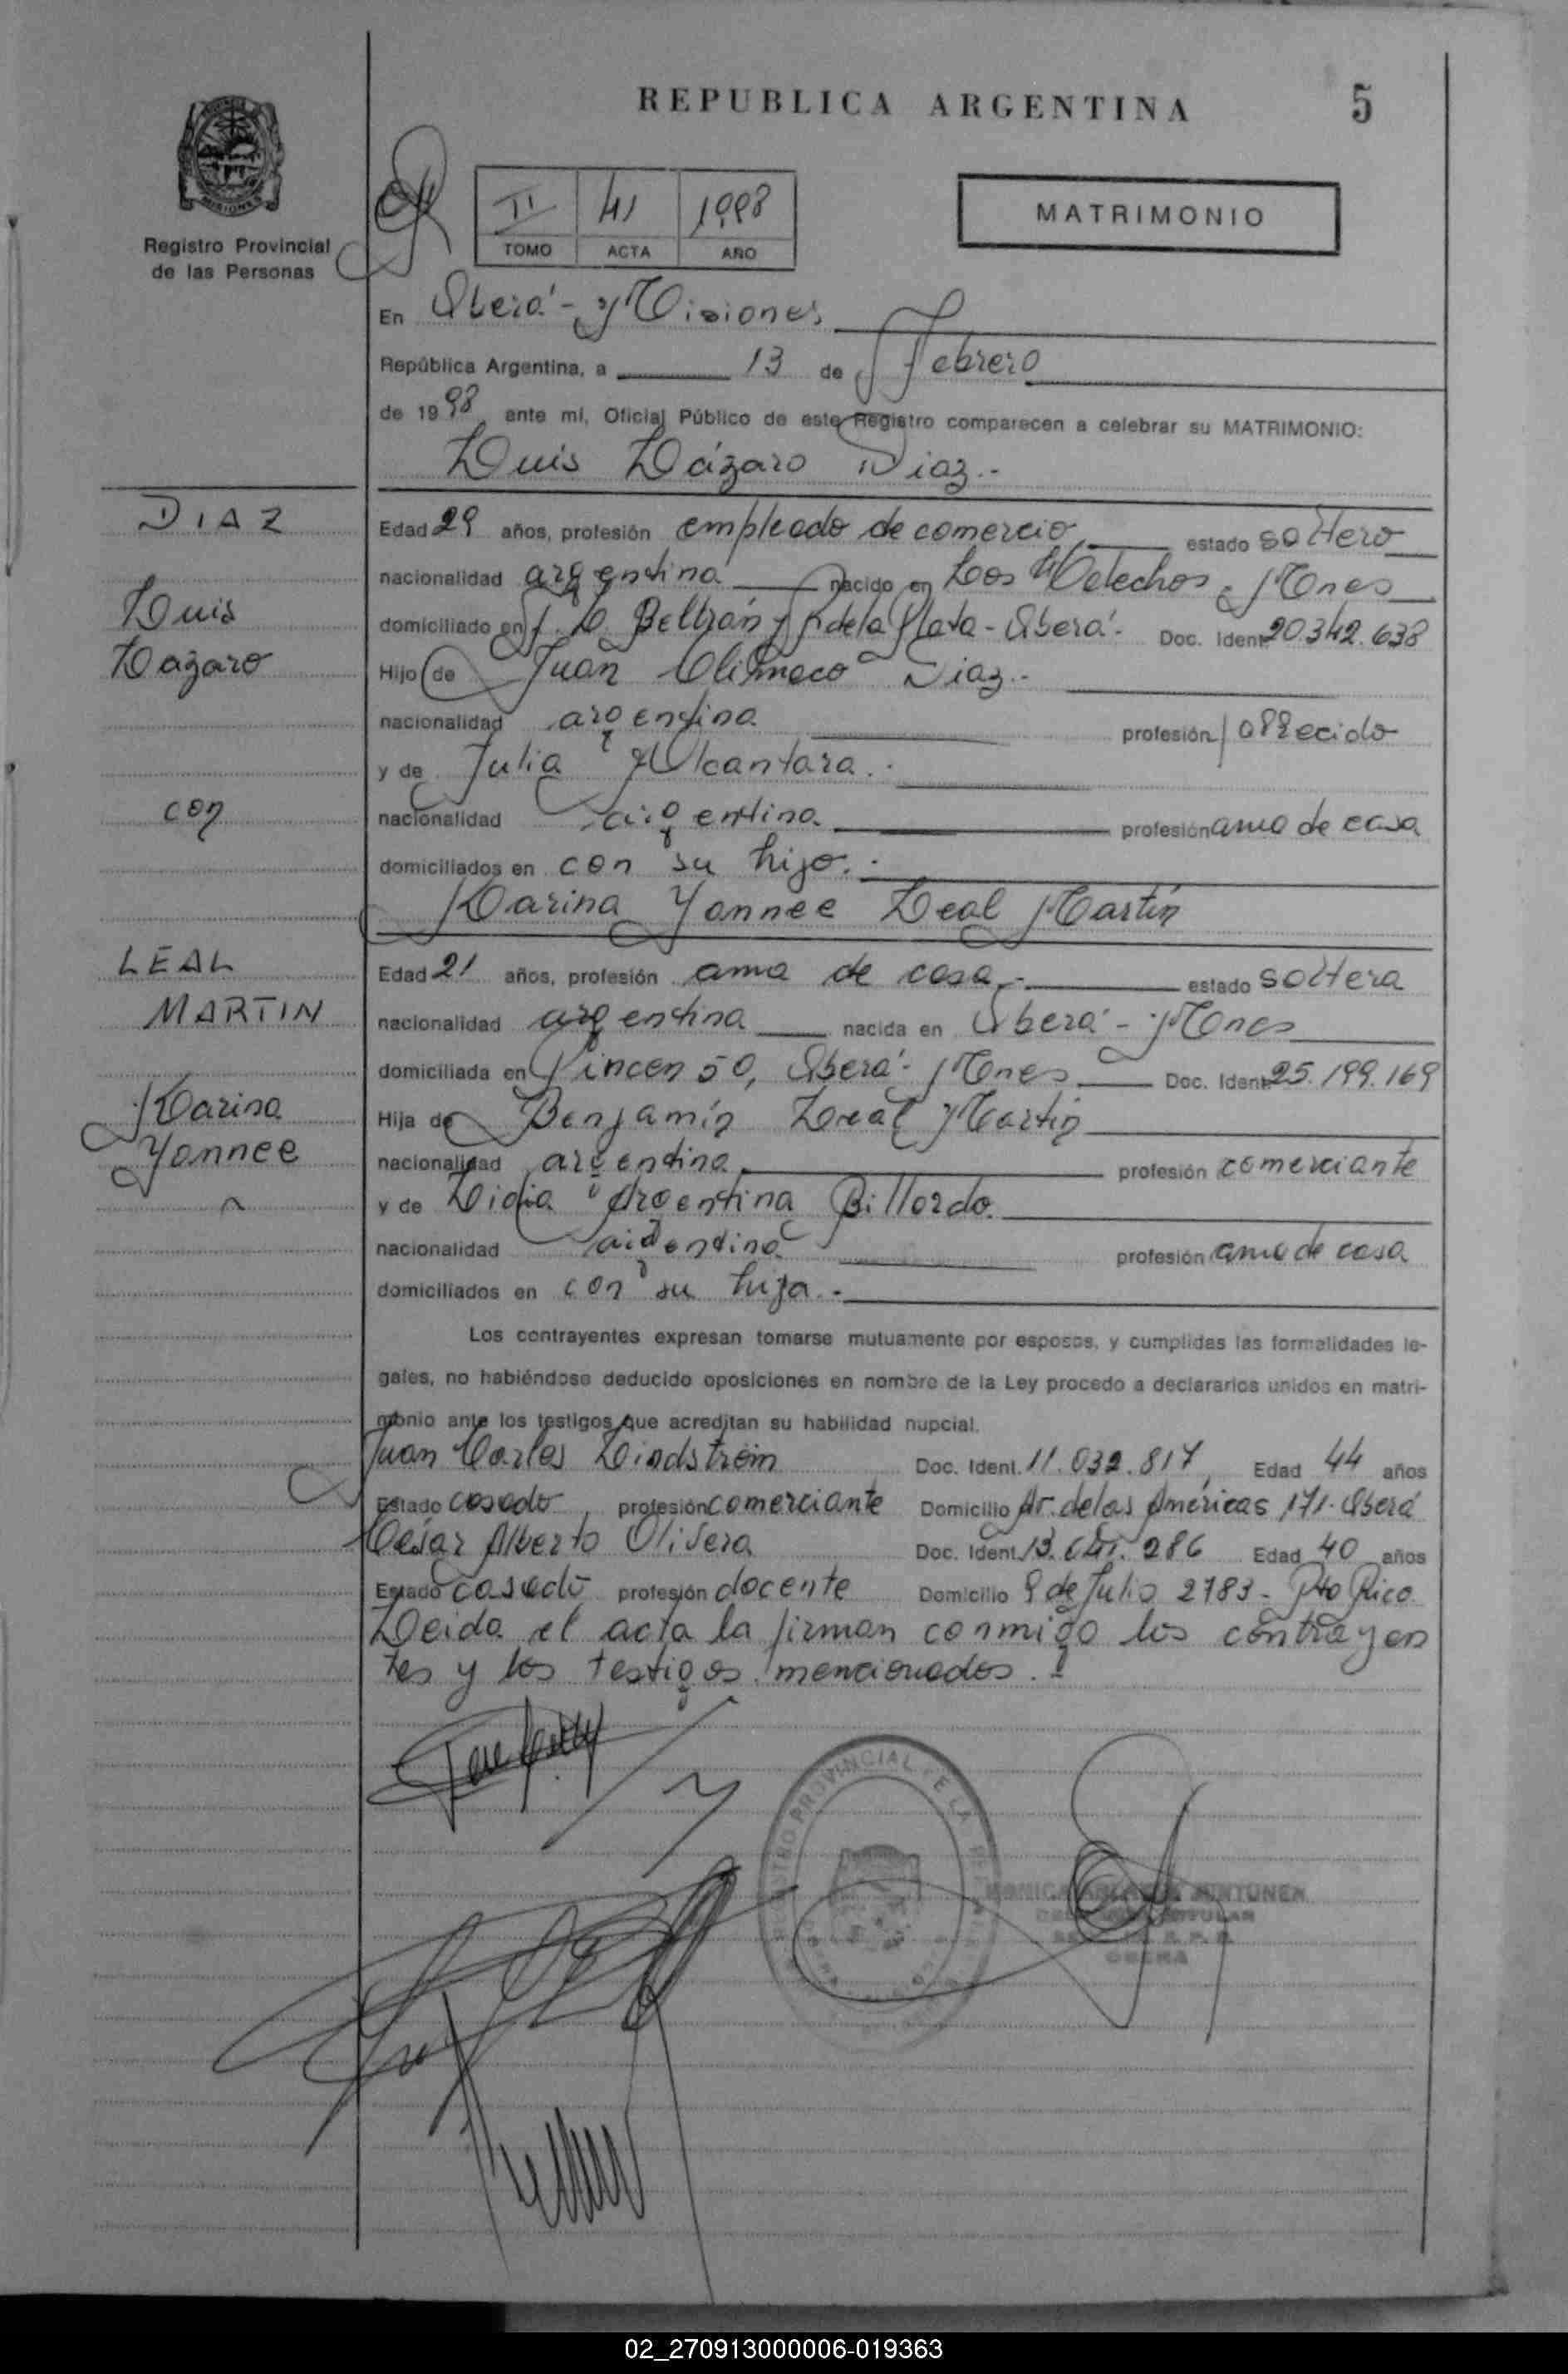 REPUBLICA ARGENTINA
5
MISIONES
Registro Provincial
de las Personas
II 41 1998
TOMO ACTA AÑO
MATRIMONIO
En Oberá - Misiones
República Argentina, a 13 de Febrero
de 1998 ante mí, Oficial Público de este Registro comparecen a celebrar su MATRIMONIO:
Luis Lázaro Diaz.-
DIAZ
Luis
Lazaro
con
LEAL
MARTIN
Karina
Yannee
Edad 29 años, profesión empleado de comercio, estado soltero
nacionalidad argentina nacido en Los Helechos, Mnes
domiciliado en F. L. Beltrán y R. de la Plata - Oberá - Doc. Ident. 20.342.638
Hijo de Juan Climaco Diaz.-
nacionalidad argentina profesión fallecido
y de Julia Alcantara.-
nacionalidad argentina profesión ama de casa
domiciliados en con su hijo.-
Karina Yannee Leal Martín
Edad 21 años, profesión ama de casa.- estado soltera
nacionalidad argentina nacida en Oberá - Mnes
domiciliada en Pincen 50, Oberá - Mnes Doc. Ident. 25.199.169
Hija de Benjamín Leal Martín
nacionalidad argentina profesión comerciante
y de Lidia Argentina Billordo
nacionalidad argentina profesión ama de casa
domiciliados en con su hija.-
Los contrayentes expresan tomarse mutuamente por esposos, y cumplidas las formalidades le-
gales, no habiéndose deducido oposiciones en nombre de la Ley procedo a declararlos unidos en matri-
monio ante los testigos que acreditan su habilidad nupcial.
Juan Carlos Lindström Doc. Ident. 11.032.817, Edad 44 años
Estado casado, profesión comerciante Domicilio Av. de las Américas 171. Oberá
César Alberto Olivera Doc. Ident. 13. 286 Edad 40 años
Estado casado profesión docente Domicilio 9 de Julio 2783 - Pto Rico
Leida el acta la firman conmigo los contrayen
tes y los testigos mencionados.-
REGISTRO PROVINCIAL DE LA
OBERA
02_270913000006-019363